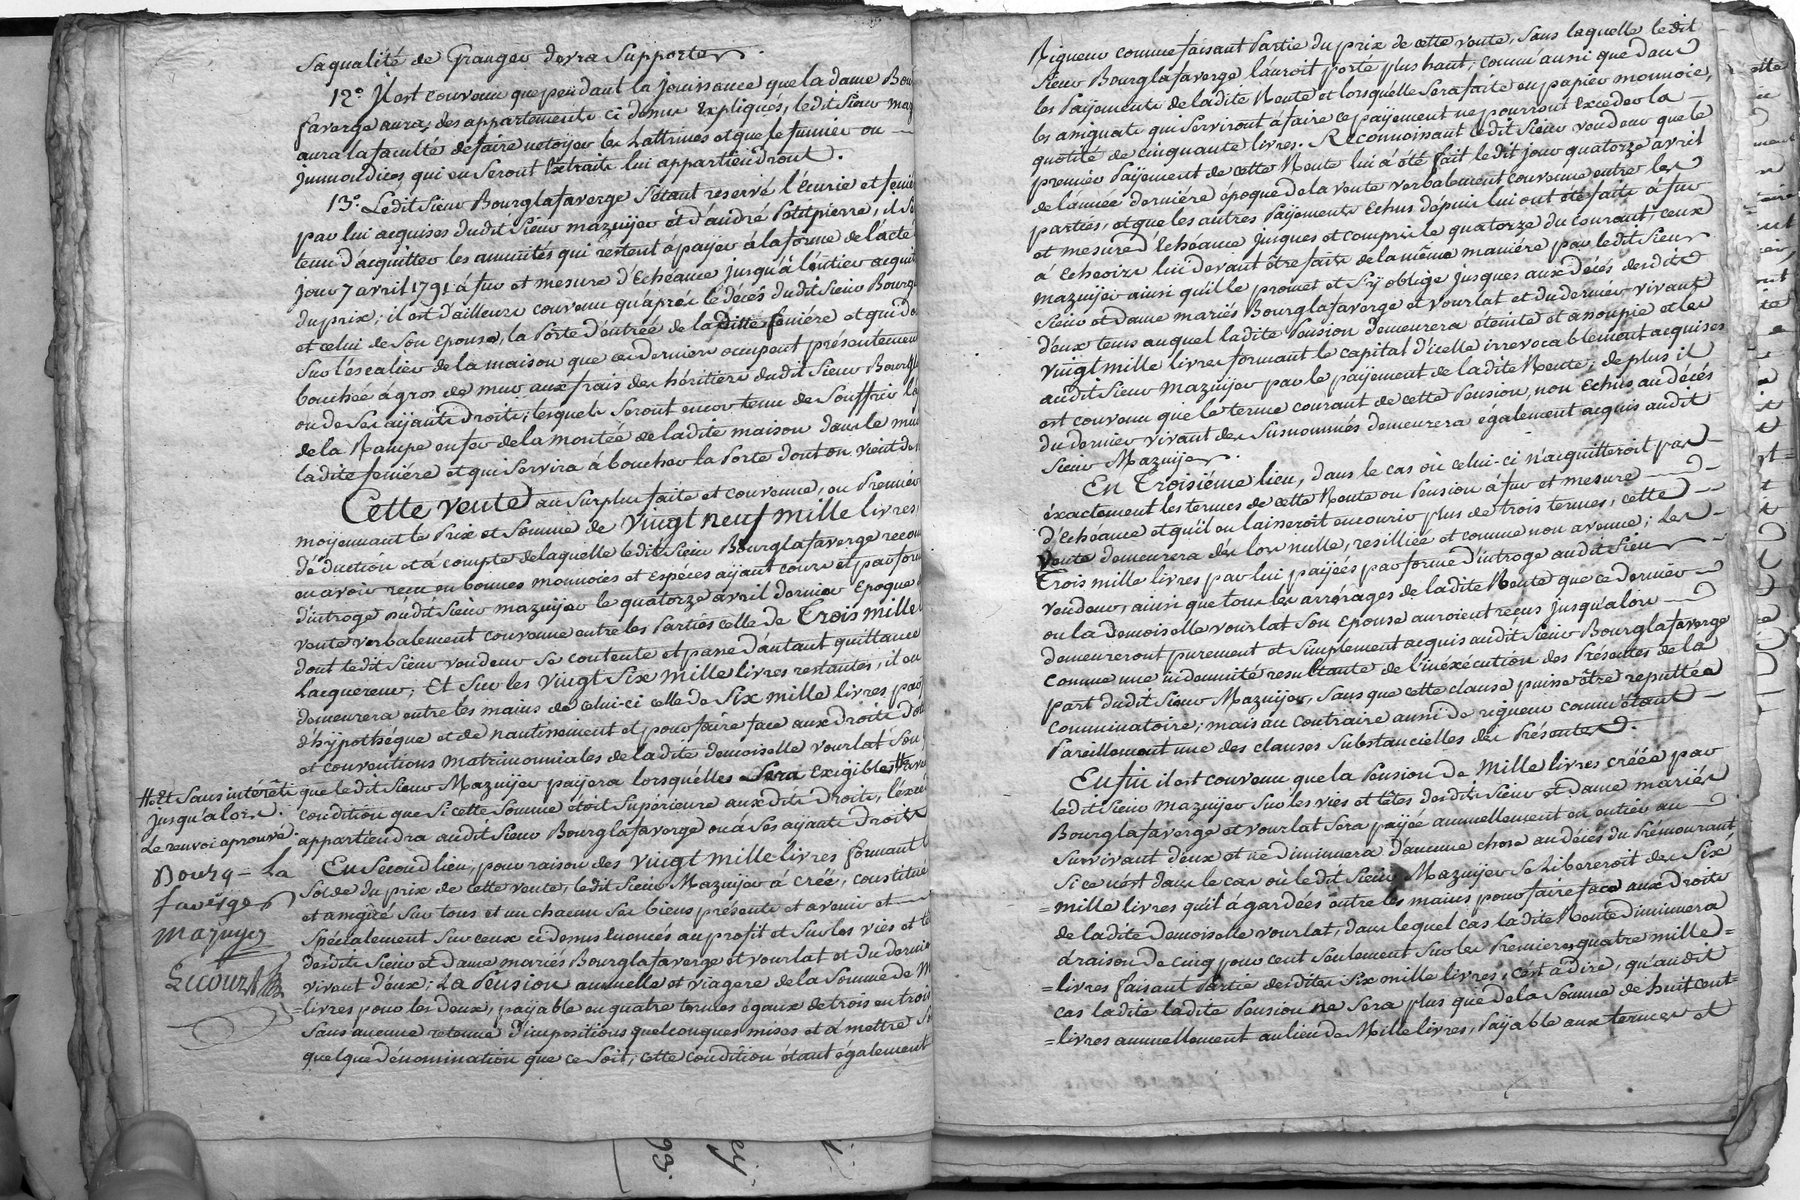 Sa qualité de Granger devra Supporter.
12°. Il est convenu que pendant la jouissance que la dame Bour
faverge aura, des appartements ci dessus expliqués, ledit Sieur maz
aura la faculté de faire netoÿer les Lattrines et que le fumier ou
Jmmondices qui en Seront Extraits lui appartiendront.
13°. Ledit Sieur Bourglafaverge S'étant reservé l'écurie et feniér
par lui acquises dudit Sieur mazuijer et d'andré Petitpierre, il S
tenu d'acquitter les annuités qui restent à paÿer à la forme de l'acte
jour 7 avril 1791 à fur et mesure d'Echéance jusqu'à l'entier acquit
du prix; il est d'ailleurs convenu qu'après le décés dudit Sieur Bourg
et celui de Son Epouse, la Porte d'entrée de la ditte feniére et qui do
Sur l'éscalier de la maison que ce dernier occupent présentement
bouchée à gros de mur aux frais des héritiers dudit Sieur Bourgla
ou de Ses aÿants droits; lesquels Seront encor tenu de Souffrir la
de la Rampe en fer de la montée de ladite maison dans le mur
ladite feniére et qui Servira à boucher la Porte dont on vient de
Cette vente au Surplus faite et convenue, en Premier
moyennant le Prix et Somme de Vingt neuf mille livres,
déduction et à compte de laquelle ledit Sieur Bourglafaverge recon
en avoir reçu en bonnes monnoies et espéces aÿant cours et par form
d'introge dudit Sieur mazuijer le quatorze avril dernier Epoque
vente verbalement convenue entre les Parties celle de Trois mille
dont ledit Sieur vendeur se contente et passe d'autant quittance
Lacquéreur; Et Sur les Vingt Six mille livres restantes, il en
demeurera entre les mains de celui-ci celle de Six mille livres par
d'hÿpothéque et de nantissement et pour faire face aux droits Dot
et conventions matrimonniales de ladite demoiselle vourlat Son
que ledit Sieur Mazuijer paÿera lorsquelles Sera Exigibles
condition que si cette Somme étoit Supérieure aux dits droits, l'éxcé
appartiendra audit Sieur Bourglafaverge ou à Ses aÿants droits
# et Sans intérêts
jusqu'alors.
Le renvoi aprouvé.
Bourg = La
faverge
mazuyer
Lecourt
En Second lieu, pour raison des vingt mille livres formant l
Solde du prix de cette vente, ledit Sieur Mazuijer à créé, constitué
et assigné Sur tous et un chacun Ses biens présents et avenir et
Spécialement Sur ceux ci dessus énoncés au profit et Sur les vies et tê
desdits Sieur et Dame mariés Bourglafaverge et vourlat et du dernier
vivant d'eux; La Pension annuelle et viagere de la Somme de M
= livres pour les deux, paÿable en quatre termes égaux de trois en trois
Sans aucune retenue d'impositions quelconques mises et à mettre S
quelque dénomination que ce Soit, cette condition étant également
Rigueur comme faisant Partie du prix de cette vente, Sans laquelle ledit
Sieur Bourglafaverge l'auroit porté plus haut, comm'aussi que dans
les Paÿements de ladite Rente et lorsquelle Sera faite en papier monnoie,
les assignats qui Serviront à faire ce payement ne pourront Exceder la
quotité de cinquante livres. Reconnoissant ledit Sieur vendeur que le
premier Paÿement de cette Rente lui à été fait ledit jour quatorze avril
de l'année derniére époque de la vente verbalement convenue entre les
parties, et que les autres Paÿements Echus depuis lui ont été faits à fur
et mesure d'Echéance jusques et compris le quatorze du courant, ceux
à Echeoire lui devant être faits de la même maniére par ledit Sieur
Mazuijer ainsi qu'il le promet et S'ÿ oblige jusques aux décés desdits
Sieur et Dame mariés Bourglafaverge et vourlat et du dernier vivant
d'eux tems auquel ladite Pension demeurera éteinte et assoupie et les
vingt mille livres formant le capital d'icelle irrevocablement acquises
audit Sieur Mazuijer par le paÿement de ladite Rente; de plus il
est convenu que le terme courant de cette Pension, non Echus au décés
du dernier vivant des Susnommés demeurera également acquis audit
Sieur Mazuijer.
En Troisiéme lieu, dans le cas où celui-ci n'acquitteroit pas
éxactement les termes de cette Rente ou Pension à fur et mesure
d'Echéance et qu'il en laisseroit encourir plus de trois termes, cette
Vente demeurera dès lors nulle, resilliée et comme non avenue; Les
Trois mille livres par lui paÿées par forme d'introge audit Sieur
vendeur, ainsi que tous les arrérages de ladite Rente que ce dernier
ou la Demoiselle vourlat Son Epouse auroient reçus jusqu'alors
demeureront purement et Simplement acquis audit Sieur Bourglafaverge
comme une indemnité resultante de l'inéxécution des Présentes de la
part dudit Sieur Mazuijer, Sans que cette clause puisse être reputtée
comminatoire; mais au contraire aussi de rigueur comm'étant
Pareillement une des clauses Substancielles des Présentes.
Enfin il est convenu que la Pension de Mille livres créée par
ledit Sieur mazuijer Sur les vies et têtes desdits Sieur et Dame mariés
Bourglafaverge et vourlat Sera paÿée annuellement en entier au
Survivant d'eux et ne diminuera d'aucune chose au décés du Prémourant
Si ce n'ést dans le cas où ledit Sieur Mazuijer Se Libereroit des Six
= mille livres qu'il à gardées entre les mains pour faire face aux Droits
de ladite Demoiselle vourlat, dans lequel cas ladite Rente diminuera
à raison de cinq pour cent Seulement Sur les Premieres quatre mille =
= livres faisant Partie desdites Six mille livres, c'ést à dire, qu'audit
cas ladite ladite Pension ne Sera plus que de la Somme de huit cent =
= livres annuellement au lieu de Mille livres, Paÿable aux termes et